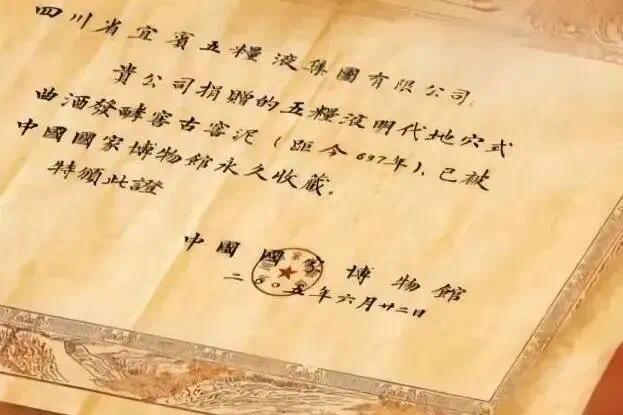 四川省宜賓五糧液集團有限公司：
貴公司捐贈的五糧液明代地穴式
曲酒發酵窖古窖泥（距今637年），已被
中國國家博物館永久收藏。
特頒此證
中國國家博物館
二〇〇五年六月廿二日